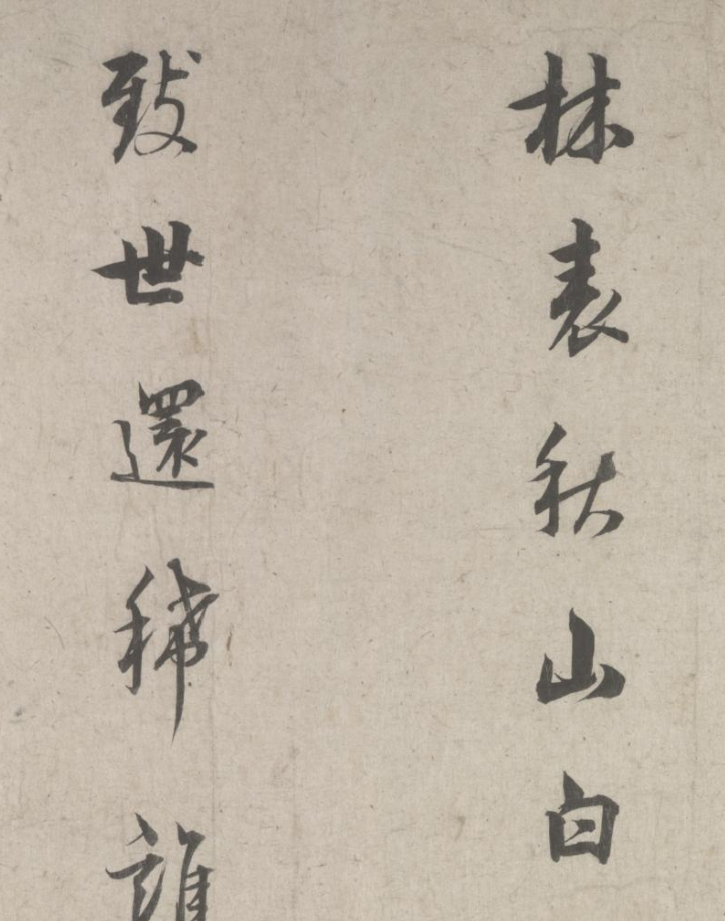 林表秋山白
致世還稀誰